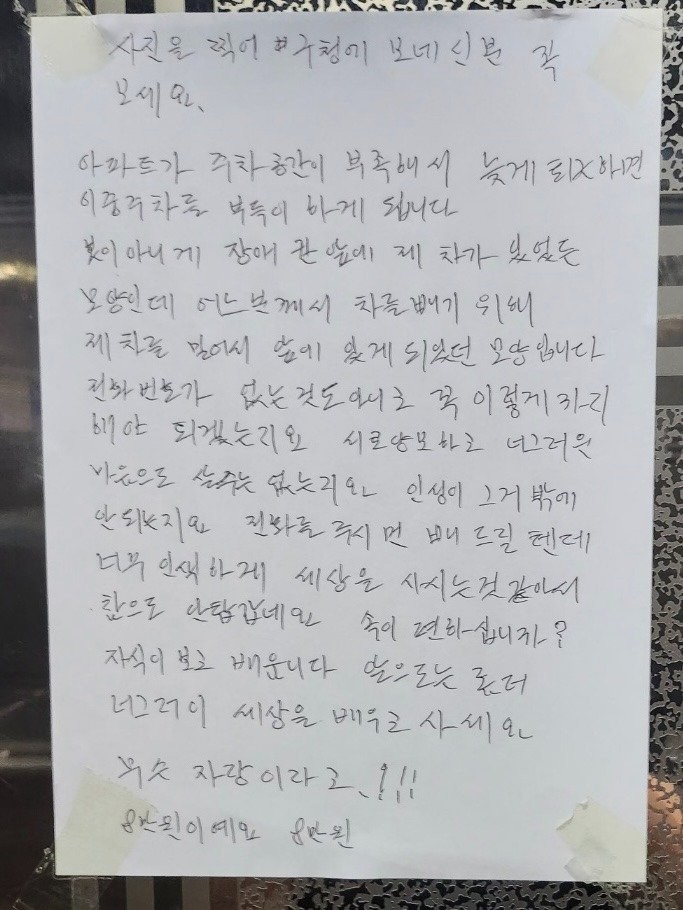 사진을 찍어 #구청에 보네신분 꼭
보세요.
아파트가 주차공간이 부족해서 늦게 퇴X하면
이중주차를 부득이 하게 됩니다
본이아니게 장애 칸 앞에 제 차가 있었든
모양인데 어느분께서 차를빼기 위해
제차를 밀어서 앞에 있게 되었던 모양입니다
전화번호가 없는것도아니고 꼭 이렇게까지
해야 되겠는지요 서로양보하고 너그러운
마음으로 살수는 없는지요 인성이 그거 밖에
안되는지요 전화를 주시면 빼 드릴 텐데
너무 인색하게 세상을 사시는것 같아서
참으로 안탑깝네요 속이 편하십니까?
자식이 보고 배웁니다 앞으로는 좀더
너그러이 세상을 배우고 사세요
무슨 자랑이라고..!!!
8만원이예요 8만원